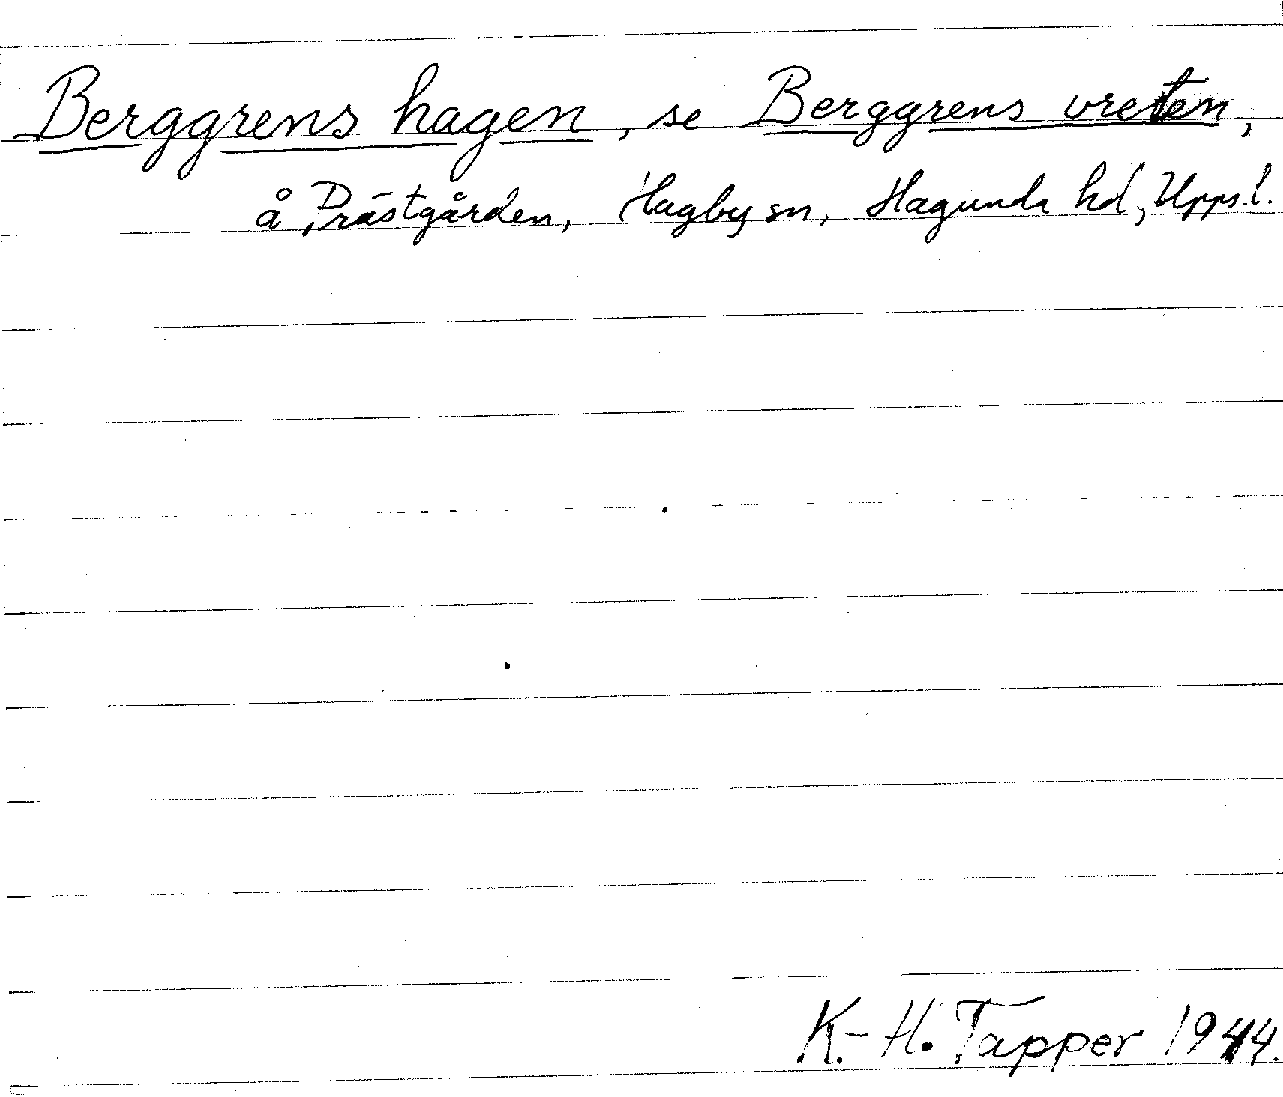 Berggrens hagen, se Berggrens vreten,
å Prästgården, Hagby sn, Hagunda hd, Upps.l.
K.-H. Tapper 1944.